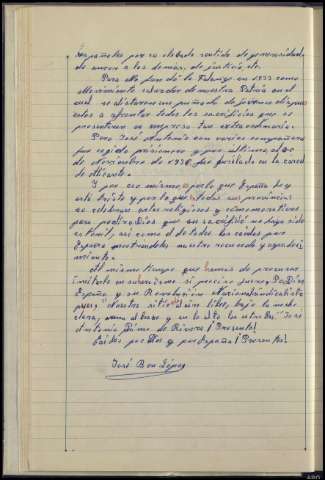 españoles por su elevado sentido de generosidad,
de amor a los demás, de justicia, etc.
Para ello fundó la Falange en 1933 como
Movimiento salvador de nuestra Patria en el
cual se alistaron un puñado de jóvenes dispues
estos a afrontar todos los sacrificios que se
presentaran en empresa tan extraordinaria.
Pero José Antonio con varios compañeros
fue cogido prisionero y por último, el 20
de Noviembre de 1936 fue fusilado en la carcel
de Alicante.
Y por eso mismo, porque España hoy
está triste y por lo que todas sus provincias
se celebran actos religiosos y conmemorativos
para pedir a Dios que su sacrificio no haya sido
estéril, así como el de todos los caídos por
España mostrandoles nuestro recuerdo y agradeci
miento.
Al mismo tiempo que hemos de procurar
imitarle en su heroísmo si preciso fuere, Por Dios,
España, y su Revolución Nacionalsindicalista
pues, "Nuestro sitio al aire libre, bajo la noche
clara, arma al brazo y en lo alto las estrellas". José
Antonio Primo de Rivera ¡Presente!
Caídos por Dios y por España ¡Presentes!
José Bou López